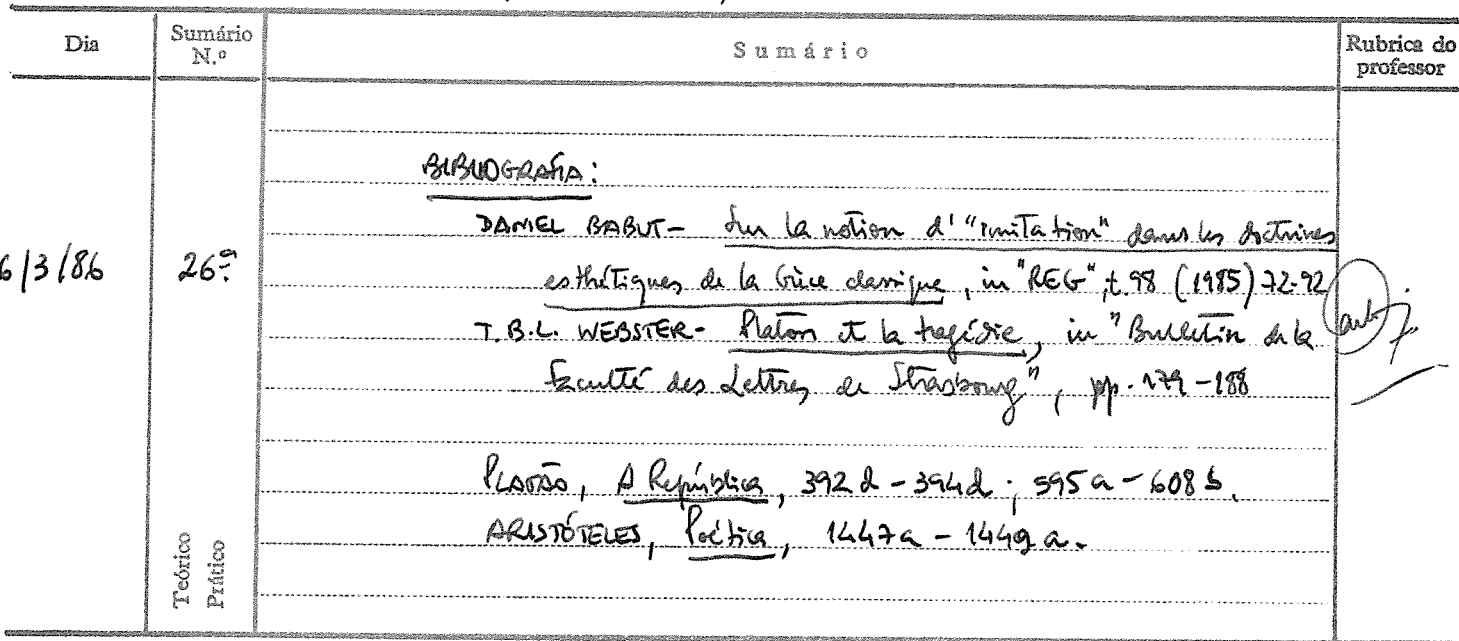 Dia
Sumário
N.º
Sumário
Rubrica do
professor
BIBLIOGRAFIA:
DANIEL BABUT- Sur la notion d'"imitation" dans les doctrines
6/3/86
26ª
esthétiques de la Grèce classique, in "REG", t.98 (1985) 72-92
T.B.L. WEBSTER- Platon et la tragédie, in "Bulletin de la
Faculté des Lettres de Strasbourg", pp. 179-188
PLATÃO, A República, 392 d - 394 d ; 595 a - 608 b.
ARISTÓTELES, Poética, 1447 a - 1449 a.
Teórico
Prático